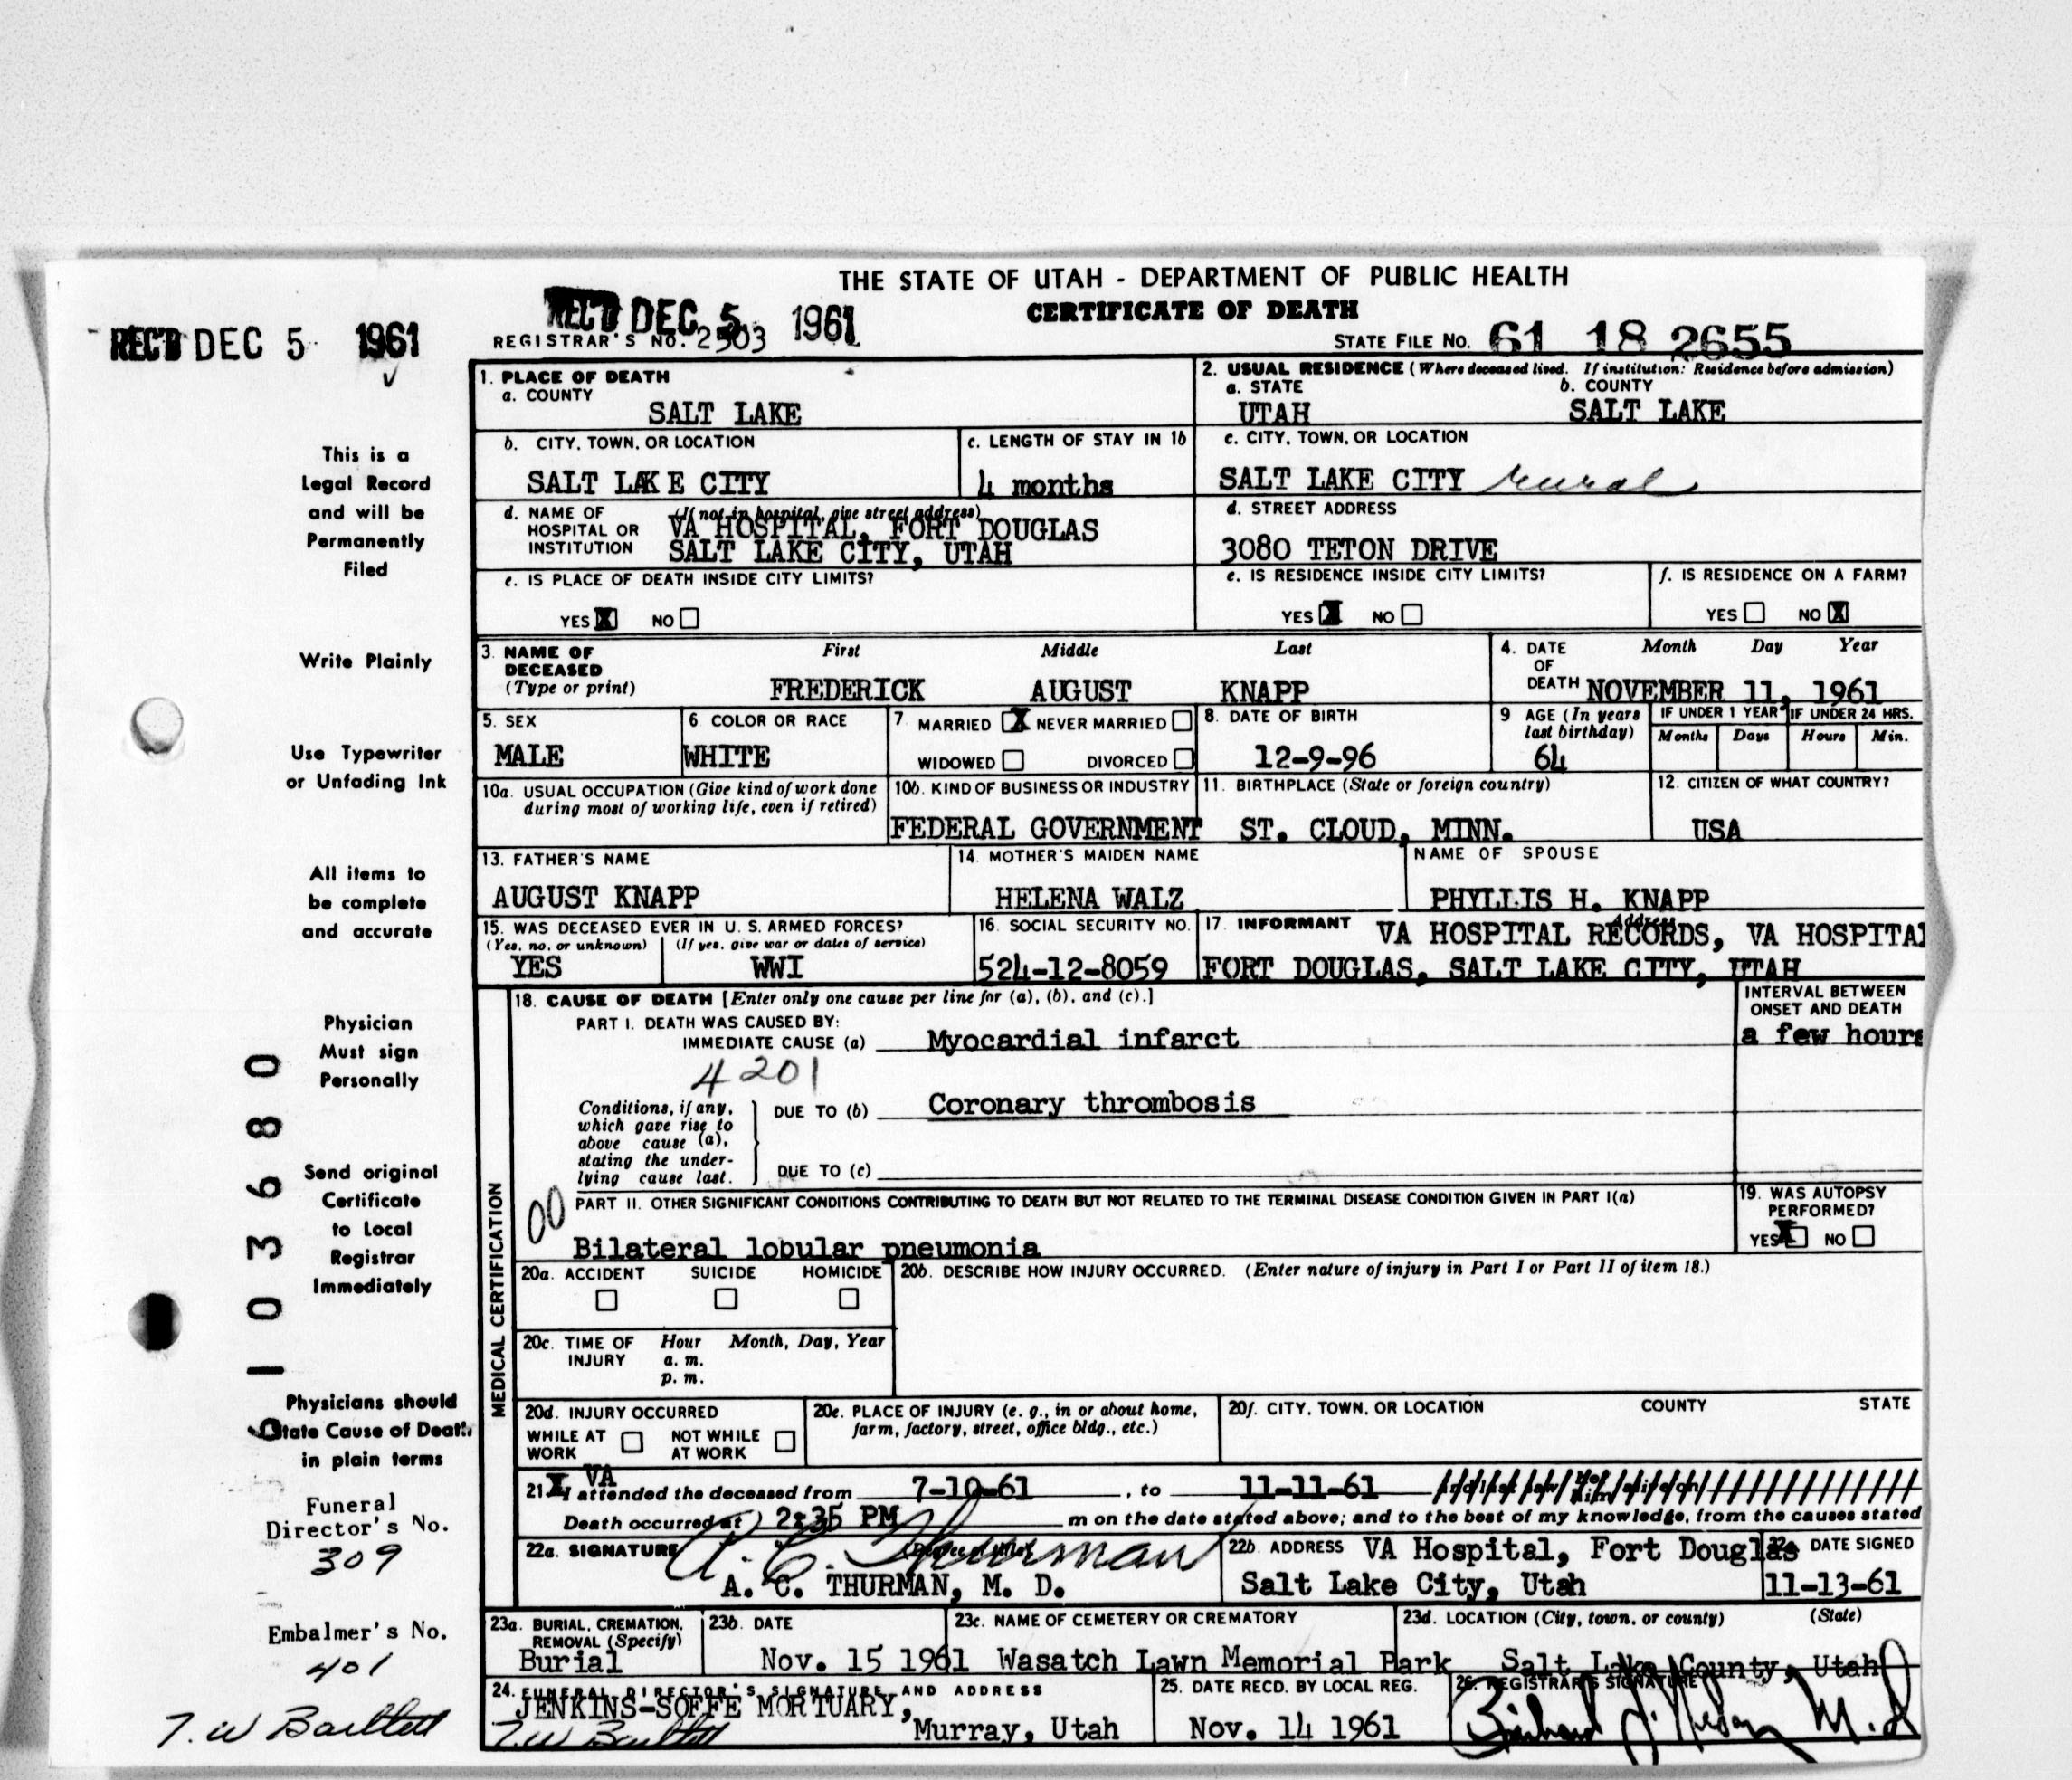 THE STATE OF UTAH - DEPARTMENT OF PUBLIC HEALTH
CERTIFICATE OF DEATH
REC'D DEC 5 1961
REC'D DEC 5 1961
REGISTRAR'S NO. 2503
STATE FILE NO. 61 18 2655
This is a
Legal Record
and will be
Permanently
Filed
Write Plainly
Use Typewriter
or Unfading Ink
All items to
be complete
and accurate
Physician
Must sign
Personally
Send original
Certificate
to Local
Registrar
Immediately
Physicians should
State Cause of Death
in plain terms
Funeral
Director's No.
309
Embalmer's No.
401
T. W Bartlett
6103680
1. PLACE OF DEATH
a. COUNTY
SALT LAKE
2. USUAL RESIDENCE (Where deceased lived. If institution: Residence before admission)
a. STATE
UTAH
b. COUNTY
SALT LAKE
b. CITY, TOWN, OR LOCATION
SALT LAKE CITY
c. LENGTH OF STAY IN 1b
4 months
c. CITY, TOWN, OR LOCATION
SALT LAKE CITY rural
d. NAME OF HOSPITAL OR INSTITUTION
(If not in hospital, give street address)
VA HOSPITAL, FORT DOUGLAS
SALT LAKE CITY, UTAH
d. STREET ADDRESS
3080 TETON DRIVE
e. IS PLACE OF DEATH INSIDE CITY LIMITS?
YES X NO
e. IS RESIDENCE INSIDE CITY LIMITS?
YES X NO
f. IS RESIDENCE ON A FARM?
YES NO X
3. NAME OF DECEASED
(Type or print)
First Middle Last
FREDERICK AUGUST KNAPP
4. DATE OF DEATH
Month Day Year
NOVEMBER 11, 1961
5. SEX
MALE
6 COLOR OR RACE
WHITE
7. MARRIED X NEVER MARRIED
WIDOWED DIVORCED
8. DATE OF BIRTH
12-9-96
9 AGE (In years last birthday)
64
IF UNDER 1 YEAR
Months Days
IF UNDER 24 HRS.
Hours Min.
10a. USUAL OCCUPATION (Give kind of work done during most of working life, even if retired)
10b. KIND OF BUSINESS OR INDUSTRY
FEDERAL GOVERNMENT
11. BIRTHPLACE (State or foreign country)
ST. CLOUD, MINN.
12. CITIZEN OF WHAT COUNTRY?
USA
13. FATHER'S NAME
AUGUST KNAPP
14. MOTHER'S MAIDEN NAME
HELENA WALZ
NAME OF SPOUSE
PHYLLIS H. KNAPP
15. WAS DECEASED EVER IN U. S. ARMED FORCES?
(Yes, no, or unknown) (If yes, give war or dates of service)
YES WWI
16. SOCIAL SECURITY NO.
524-12-8059
17. INFORMANT Address
VA HOSPITAL RECORDS, VA HOSPITAL
FORT DOUGLAS, SALT LAKE CITY, UTAH
MEDICAL CERTIFICATION
18. CAUSE OF DEATH [Enter only one cause per line for (a), (b), and (c).]
INTERVAL BETWEEN ONSET AND DEATH
PART I. DEATH WAS CAUSED BY:
IMMEDIATE CAUSE (a) Myocardial infarct
a few hours
4201
Conditions, if any, which gave rise to above cause (a), stating the underlying cause last.
DUE TO (b) Coronary thrombosis
DUE TO (c)
00
PART II. OTHER SIGNIFICANT CONDITIONS CONTRIBUTING TO DEATH BUT NOT RELATED TO THE TERMINAL DISEASE CONDITION GIVEN IN PART I(a)
Bilateral lobular pneumonia
19. WAS AUTOPSY PERFORMED?
YES X NO
20a. ACCIDENT SUICIDE HOMICIDE
20b. DESCRIBE HOW INJURY OCCURRED. (Enter nature of injury in Part I or Part II of item 18.)
20c. TIME OF INJURY
Hour Month, Day, Year
a. m.
p. m.
20d. INJURY OCCURRED
WHILE AT WORK NOT WHILE AT WORK
20e. PLACE OF INJURY (e. g., in or about home, farm, factory, street, office bldg., etc.)
20f. CITY, TOWN, OR LOCATION COUNTY STATE
21. I VA attended the deceased from 7-10-61, to 11-11-61
Death occurred at 2:35 PM m on the date stated above; and to the best of my knowledge, from the causes stated
22a. SIGNATURE
A. C. Thurman
A. C. THURMAN, M. D.
22b. ADDRESS VA Hospital, Fort Douglas
Salt Lake City, Utah
22c DATE SIGNED
11-13-61
23a. BURIAL, CREMATION, REMOVAL (Specify)
Burial
23b. DATE
Nov. 15 1961
23c. NAME OF CEMETERY OR CREMATORY
Wasatch Lawn Memorial Park
23d. LOCATION (City, town, or county) (State)
Salt Lake County, Utah
24. FUNERAL DIRECTOR'S SIGNATURE AND ADDRESS
JENKINS-SOFFE MORTUARY,
T.W Bartlett Murray, Utah
25. DATE RECD. BY LOCAL REG.
Nov. 14 1961
26. REGISTRAR'S SIGNATURE